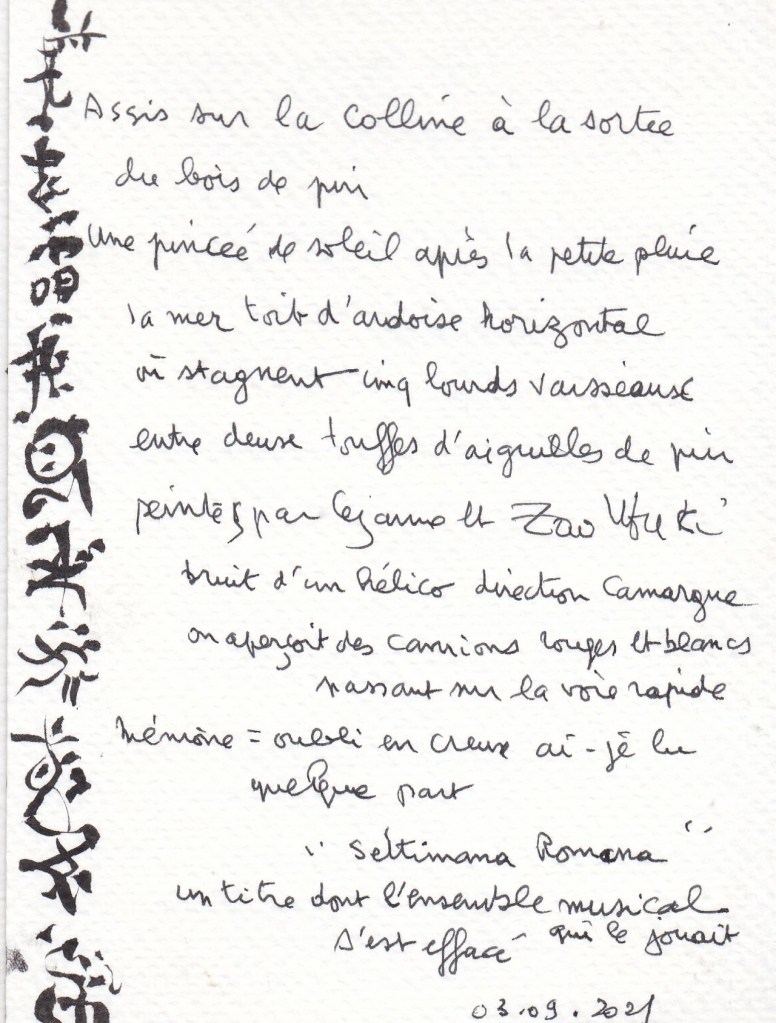 Assis sur la colline à la sortee
du bois de pin
Une pinceé de soleil après la petite pluie
la mer toit d'ardoise horizontal
où stagnent cinq lourds vaisseaux
entre deux touffes d'aiguilles de pin
peintes par Cézanne et Zao Wu Ki
bruit d'un hélico direction Camargue
on aperçoit des camions rouges et blancs
passant sur la voie rapide
Mémoire = oubli en creux ai-je lu
quelque part
" Settimana Romana "
un titre dont l'ensemble musical
qui le jouait
s'est effacé
03.09.2021